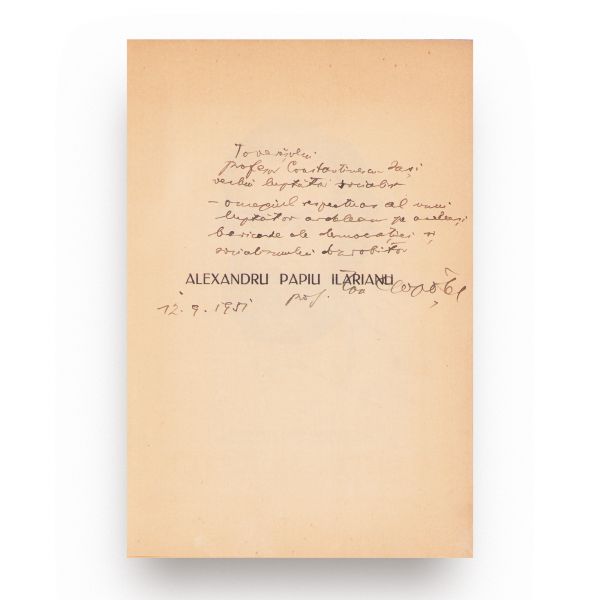 Tovarășului
profesor Constantinescu Iași
vechiu luptător socialist
– omagiul respectuos al unui
luptător ardelean pe aceleași
baricade ale democrației și
socialismului desrobitor
ALEXANDRU PAPIU ILARIANU
prof.
12.9.1951